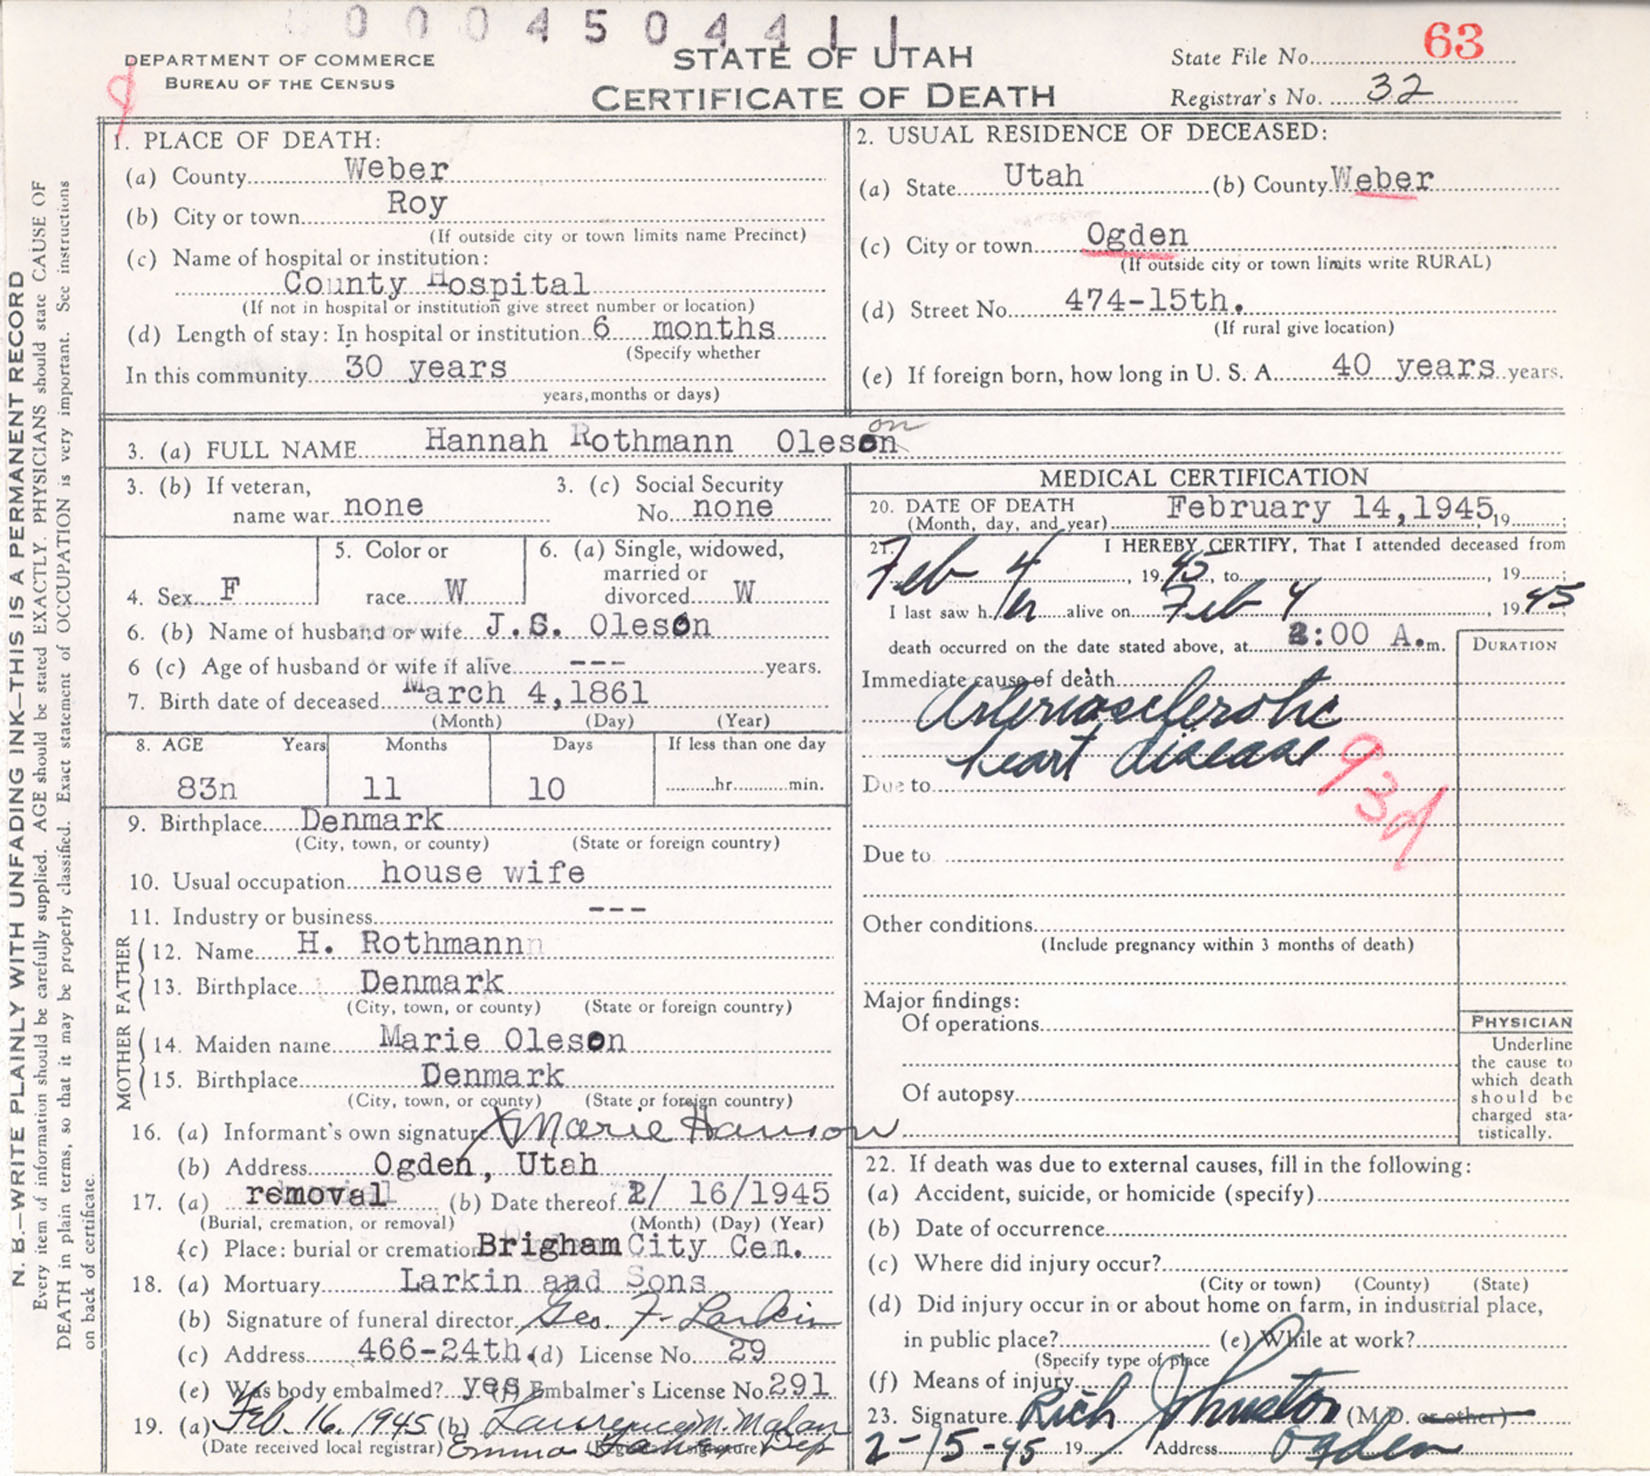 0004504411
DEPARTMENT OF COMMERCE
BUREAU OF THE CENSUS
STATE OF UTAH
CERTIFICATE OF DEATH
State File No. 63
Registrar's No. 32
N. B.—WRITE PLAINLY WITH UNFADING INK—THIS IS A PERMANENT RECORD
Every item of information should be carefully supplied. AGE should be stated EXACTLY. PHYSICIANS should state CAUSE OF
DEATH in plain terms, so that it may be properly classified. Exact statement of OCCUPATION is very important. See instructions
on back of certificate.
1. PLACE OF DEATH:
(a) County Weber
(b) City or town Roy
(If outside city or town limits name Precinct)
(c) Name of hospital or institution:
County Hospital
(If not in hospital or institution give street number or location)
(d) Length of stay: In hospital or institution 6 months
(Specify whether
In this community 30 years
years, months or days)
2. USUAL RESIDENCE OF DECEASED:
(a) State Utah (b) County Weber
(c) City or town Ogden
(If outside city or town limits write RURAL)
(d) Street No. 474-15th.
(If rural give location)
(e) If foreign born, how long in U. S. A. 40 years years.
3. (a) FULL NAME Hannah Rothmann Oleson on
3. (b) If veteran, name war none
3. (c) Social Security No. none
4. Sex F
5. Color or race W
6. (a) Single, widowed, married or divorced W
6. (b) Name of husband or wife J.S. Oleson
6 (c) Age of husband or wife if alive --- years.
7. Birth date of deceased March 4,1861
(Month) (Day) (Year)
8. AGE Years Months Days If less than one day
83n 11 10 hr. min.
9. Birthplace Denmark
(City, town, or county) (State or foreign country)
10. Usual occupation house wife
11. Industry or business ---
FATHER
12. Name H. Rothmann
13. Birthplace Denmark
(City, town, or county) (State or foreign country)
MOTHER
14. Maiden name Marie Oleson
15. Birthplace Denmark
(City, town, or county) (State or foreign country)
16. (a) Informant's own signature X Marie Hanson
(b) Address Ogden, Utah
17. (a) removal (b) Date thereof 2/ 16/1945
(Burial, cremation, or removal) (Month) (Day) (Year)
(c) Place: burial or cremation Brigham City Cen.
18. (a) Mortuary Larkin and Sons
(b) Signature of funeral director Geo. F. Larkin
(c) Address 466-24th. (d) License No. 29
(e) Was body embalmed? yes (f) Embalmer's License No. 291
19. (a) Feb. 16, 1945 (b) Lawrence M. Malan
(Date received local registrar) Emma (Registrar's signature) Dep
MEDICAL CERTIFICATION
20. DATE OF DEATH
(Month, day, and year) February 14,1945, 19 ;
21. I HEREBY CERTIFY, That I attended deceased from
Feb 4, 1945, to , 19 ;
I last saw her alive on Feb 4, 1945;
death occurred on the date stated above, at :00 A.m.
DURATION
Immediate cause of death
Arteriosclerotic
heart disease
93d
Due to
Due to
Other conditions
(Include pregnancy within 3 months of death)
Major findings:
Of operations
Of autopsy
PHYSICIAN
Underline
the cause to
which death
should be
charged sta-
tistically.
22. If death was due to external causes, fill in the following:
(a) Accident, suicide, or homicide (specify)
(b) Date of occurrence
(c) Where did injury occur?
(City or town) (County) (State)
(d) Did injury occur in or about home on farm, in industrial place,
in public place? (e) While at work?
(Specify type of place
(f) Means of injury
23. Signature Rich Johnston (M.D. or other)
2-15-45 19 Address Ogden